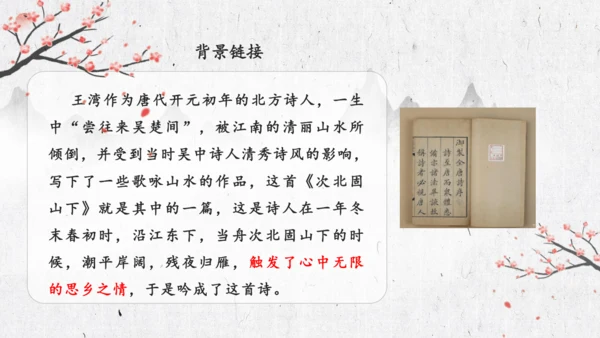 背景链接
王湾作为唐代开元初年的北方诗人，一生
中“尝往来吴楚间”，被江南的清丽山水所
倾倒，并受到当时吴中诗人清秀诗风的影响，
写下了一些歌咏山水的作品，这首《次北固
山下》就是其中的一篇，这是诗人在一年冬
末春初时，沿江东下，当舟次北固山下的时
候，潮平岸阔，残夜归雁，触发了心中无限
的思乡之情，于是吟成了这首诗。
御製全唐詩序
詩至唐而眾體悉
備亦諸法畢該故
稱詩者必視唐人